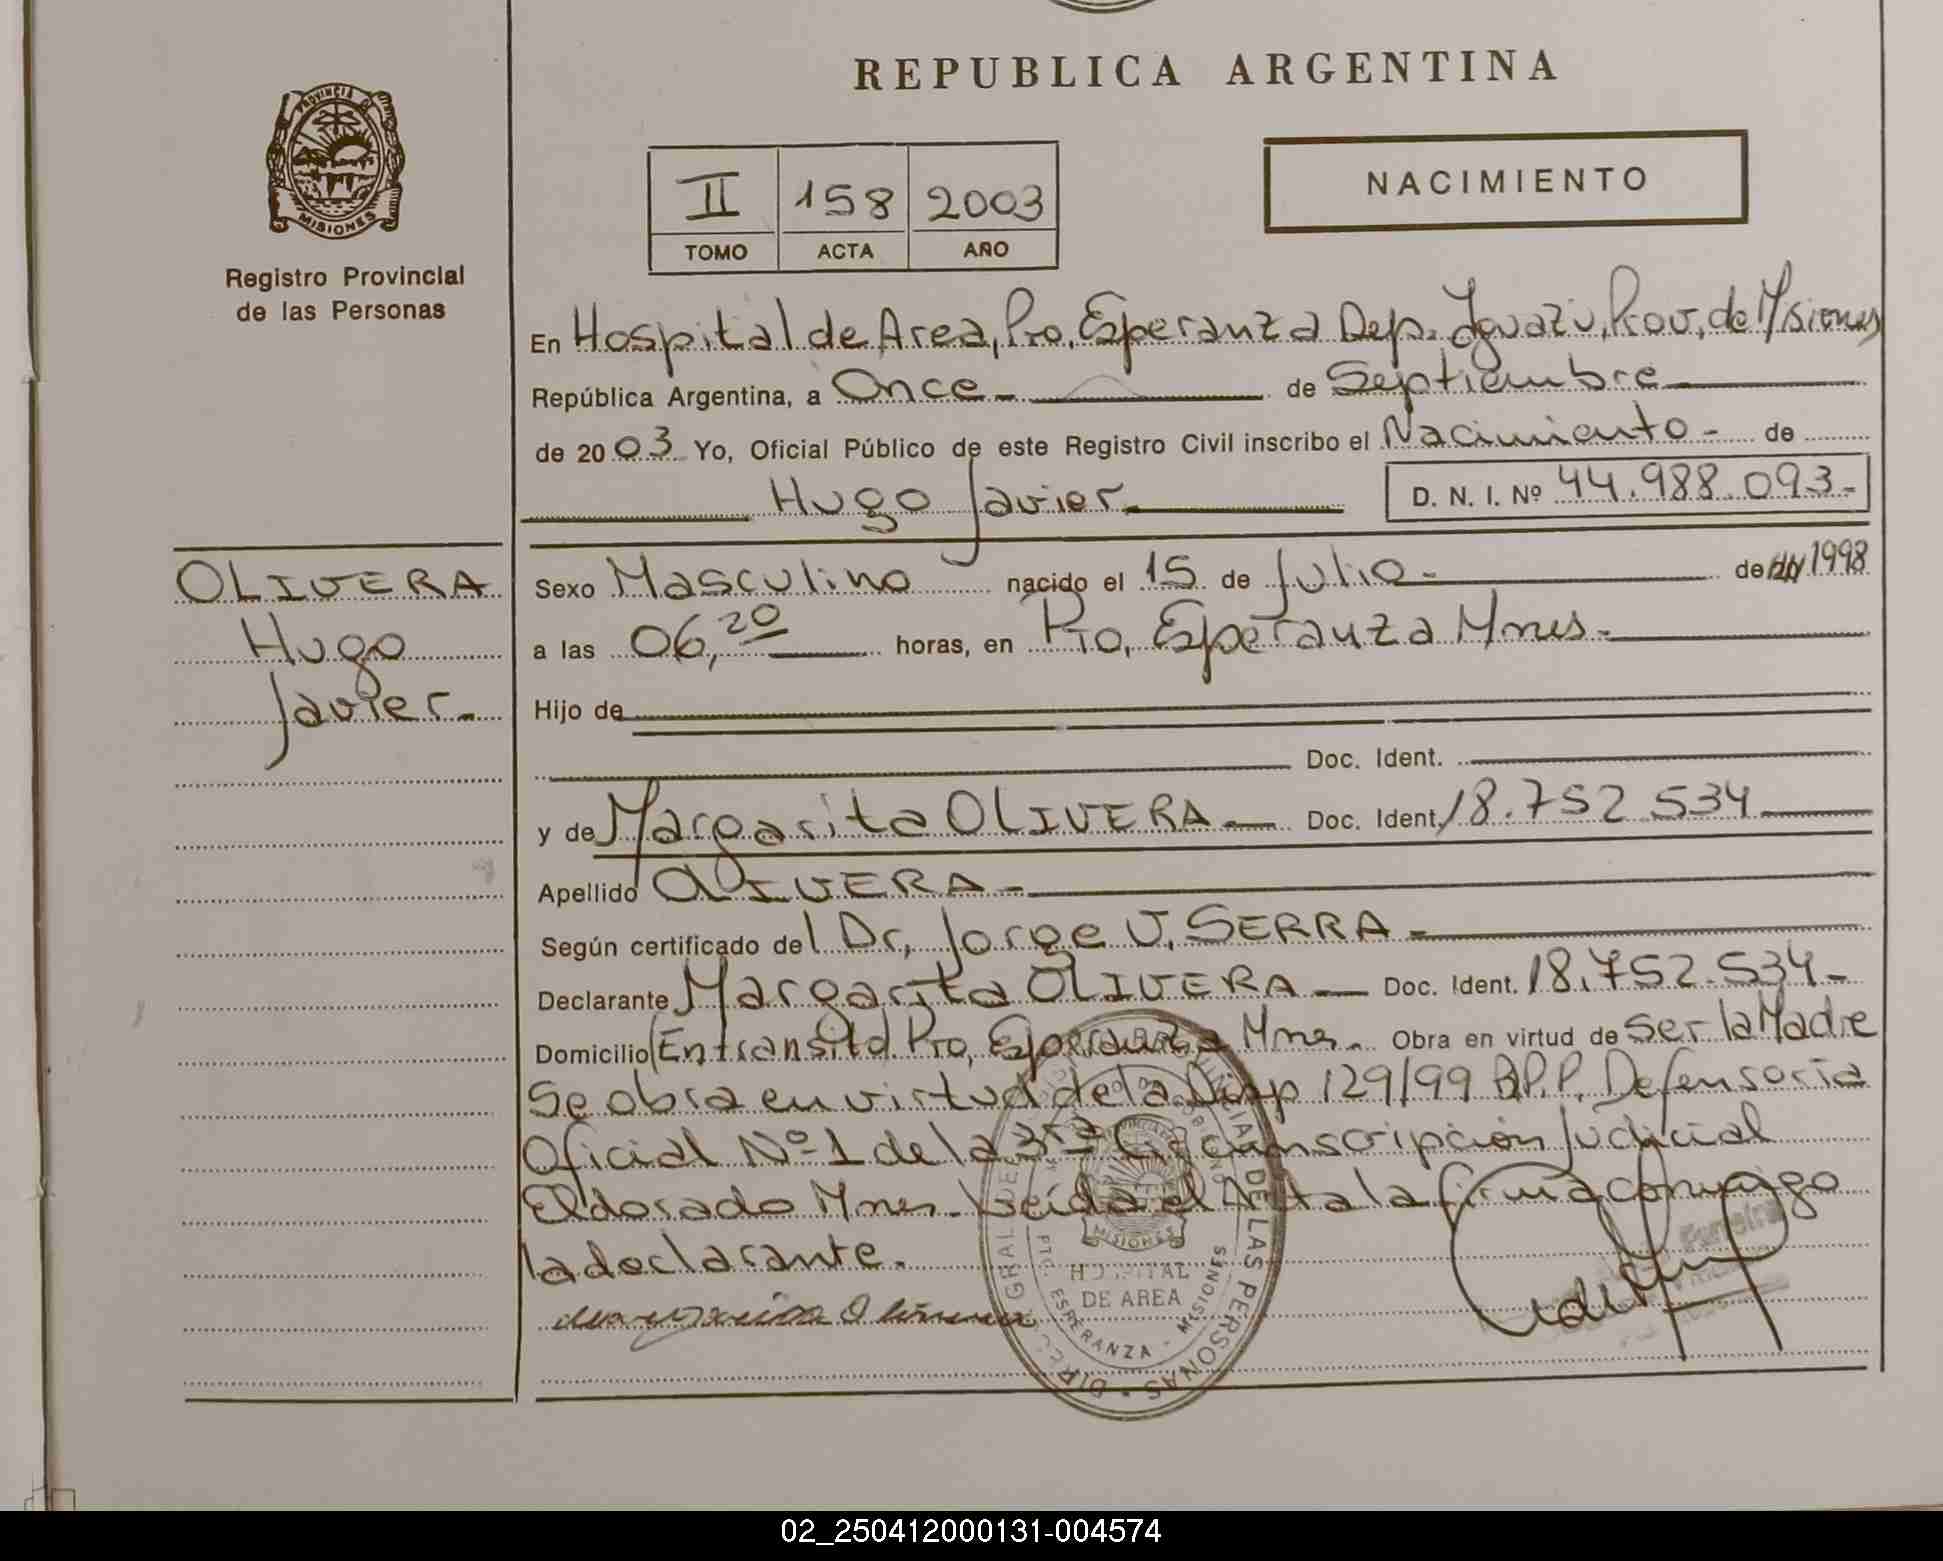 REPUBLICA ARGENTINA
PROVINCIA DE
MISIONES
Registro Provincial
de las Personas
II 158 2003
TOMO ACTA AÑO
NACIMIENTO
En Hospital de Area, Pto. Esperanza Dep. Iguazú, Prov. de Misiones
República Argentina, a Once de Septiembre
de 2003 Yo, Oficial Público de este Registro Civil inscribo el Nacimiento de
Hugo Javier D. N. I. Nº 44.988.093-
OLIVERA
Hugo
Javier-
Sexo Masculino nacido el 15 de Julio de 1998
a las 06,20 horas, en Pto, Esperanza Mnes-
Hijo de
Doc. Ident.
y de Margarita OLIVERA Doc. Ident 18.752.534
Apellido OLIVERA-
Según certificado del Dr, Jorge V. SERRA-
Declarante Margarita OLIVERA Doc. Ident. 18.752.534-
Domicilio (En transito) Pto, Esperanza Mnes. Obra en virtud de Ser la Madre
Se obra en virtud de la Disp 129/99 R.P.P. Defensoria
Oficial Nº 1 de la 3ra Circunscripción Judicial
Eldorado Mnes. Leída el Acta la firma conmigo
la declarante.
Margarita Olivera
DIRECCION GRAL DE REG PROVINCIAL DE LAS PERSONAS
MISIONES
HOSPITAL
DE AREA
PTO. ESPERANZA - MISIONES
02_250412000131-004574